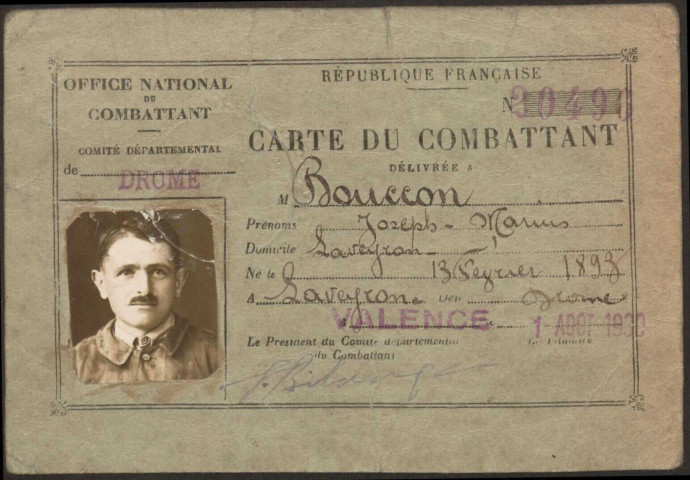 OFFICE NATIONAL
DU
COMBATTANT
COMITÉ DÉPARTEMENTAL
de DROME
RÉPUBLIQUE FRANÇAISE
N° 30490
CARTE DU COMBATTANT
DÉLIVRÉE A
M Bouccon
Prénoms Joseph - Marius
Domicile Laveyron
Né le 13 Fevrier 1893
A Laveyron Dép Drome
VALENCE 1 AOUT 1930
Le Président du Comité départemental Le Titulaire
du Combattant